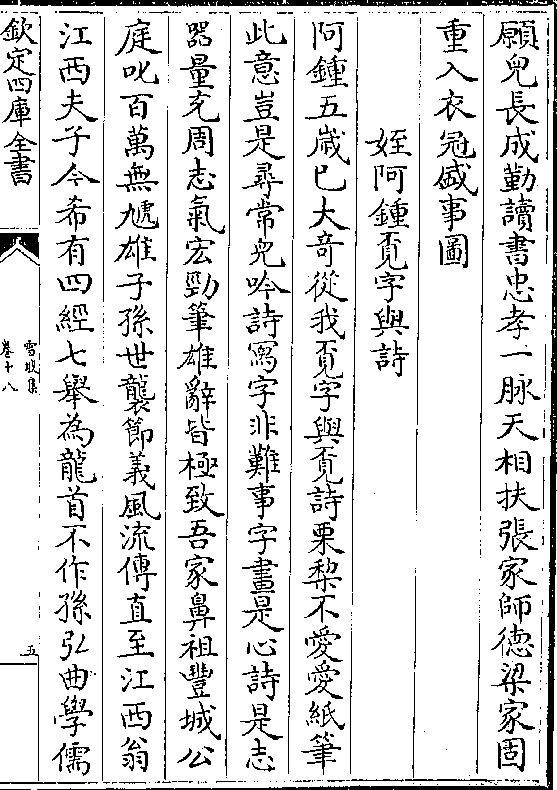 願兒長成勤讀書忠孝一脉天相扶張家師德梁家固
重入衣冠盛事圖
姪阿鍾覔字與詩
阿鍾五歲已大竒從我覔字與覔詩栗棃不愛愛紙筆
此意豈是尋常兒吟詩寫字非難事字畫是心詩是志
器量充周志氣宏勁筆雄辭皆極致吾家鼻祖豐城公
庭叱百萬無虓雄子孫世襲節義風流傳直至江西翁
江西夫子今希有四經七舉為龍首不作孫弘曲學儒
欽定四庫全書
雪坡集
卷十八
五